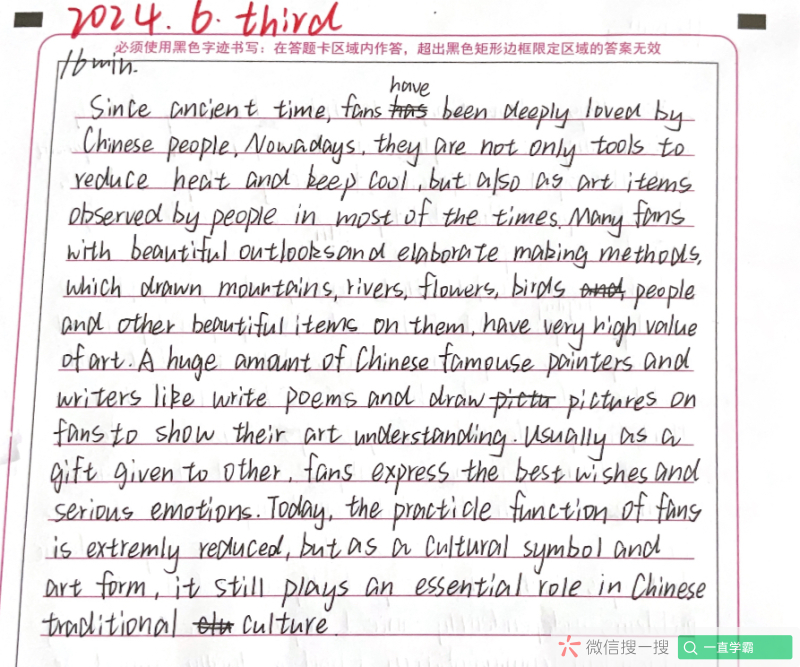 2024.6.third
必须使用黑色字迹书写：在答题卡区域内作答，超出黑色矩形边框限定区域的答案无效
16min.
have
Since ancient time, fans has been deeply loved by
Chinese people, Nowadays, they are not only tools to
reduce heat and keep cool, but also as art items
observed by people in most of the times. Many fans
with beautiful outlooks and elaborate making methods,
which drawn mountains, rivers, flowers, birds and people
and other beautiful items on them, have very high value
of art. A huge amount of Chinese famouse painters and
writers like write poems and draw pictu pictures on
fans to show their art understanding. Usually as a
gift given to other, fans express the best wishes and
serious emotions. Today, the practicle function of fans
is extremly reduced, but as a cultural symbol and
art form, it still plays an essential role in Chinese
traditional clu culture.
微信搜一搜 一直学霸